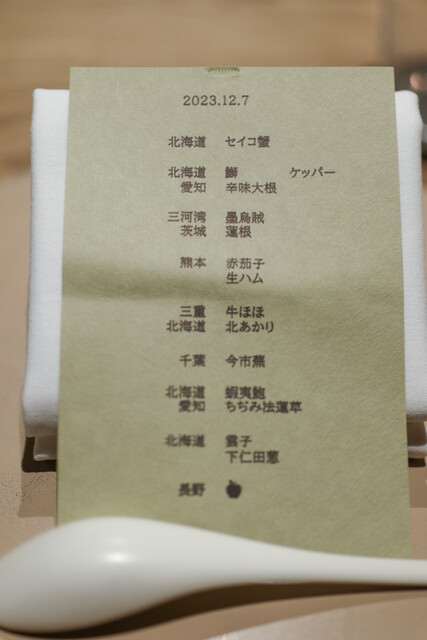 2023.12.7
北海道 セイコ蟹
北海道 鰤 ケッパー
愛知 辛味大根
三河湾 墨烏賊
茨城 蓮根
熊本 赤茄子
生ハム
三重 牛ほほ
北海道 北あかり
千葉 今市蕪
北海道 蝦夷鮑
愛知 ちぢみ法蓮草
北海道 雲子
下仁田葱
長野